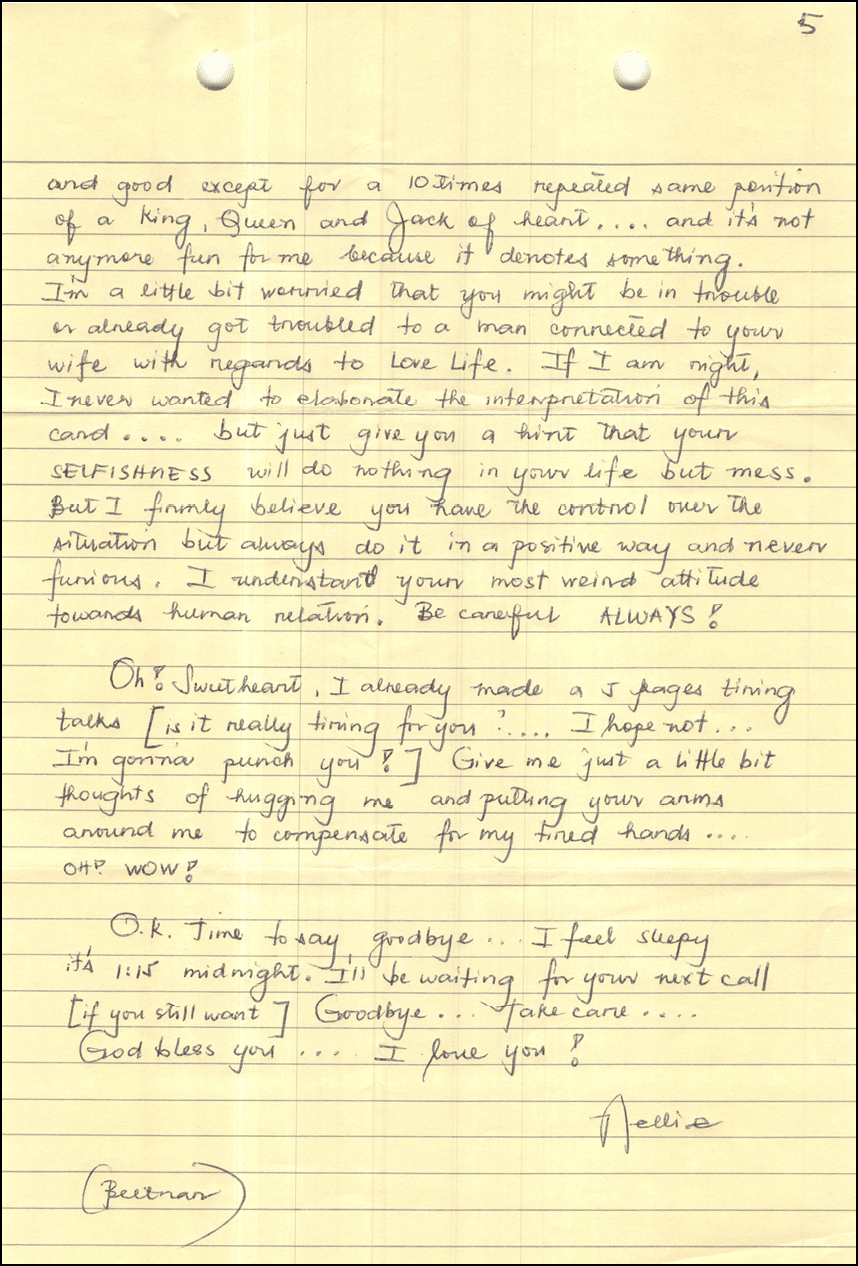 5
and good except for a 10 times repeated same position
of a King, Queen and Jack of heart.... and it's not
anymore fun for me because it denotes something.
I'm a little bit worried that you might be in trouble
or already got troubled to a man connected to your
wife with regards to Love Life. If I am right,
I never wanted to elaborate the interpretation of this
card.... but just give you a hint that your
SELFISHNESS will do nothing in your life but mess.
But I firmly believe you have the control over the
situation but always do it in a positive way and never
furious. I understand your most weird attitude
towards human relation. Be careful ALWAYS!
Oh! Sweetheart, I already made a 5 pages tiring
talks [is it really tiring for you?.... I hope not...
I'm gonna punch you!] Give me just a little bit
thoughts of hugging me and putting your arms
around me to compensate for my tired hands....
OH! WOW!
O.k. Time to say goodbye... I feel sleepy
it's 1:15 midnight. I'll be waiting for your next call
[if you still want] Goodbye... Take care....
God bless you.... I love you!
Nellie